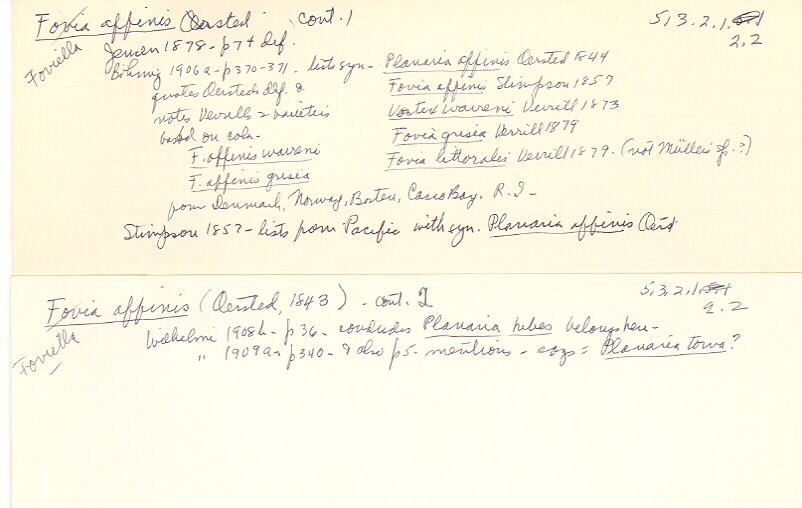 Fovia affinis Oersted cont. 1
5, 3. 2. 1.
2, 2
Foviella
Jensen 1878 - p 74 def.
Böhmig 1906a - p370-371. lists syn - Planaria affinis Oersted 1844
quotes Oersteds def. & Fovia affinis Stimpson 1857
notes Verrills 2 varieties Vortex warreni Verrill 1873
based on color - Fovia grisea Verrill 1879
F. affinis warreni Fovia littoralis Verrill 1879. (not Müllers sp.?)
F. affinis grisea
from Denmark, Norway, Boston, Casco Bay, R. I -
Stimpson 1857 - lists from Pacific with syn. Planaria affinis Oerst
Fovia affinis (Oersted, 1843) - cont. 2
5, 3, 2, 1
2. 2
Foviella
Wilhelmi 1908b - p 36 - concludes Planaria hebes belongs here -
" 1909a - p340 - & also p5 - mentions - says = Planaria torva?